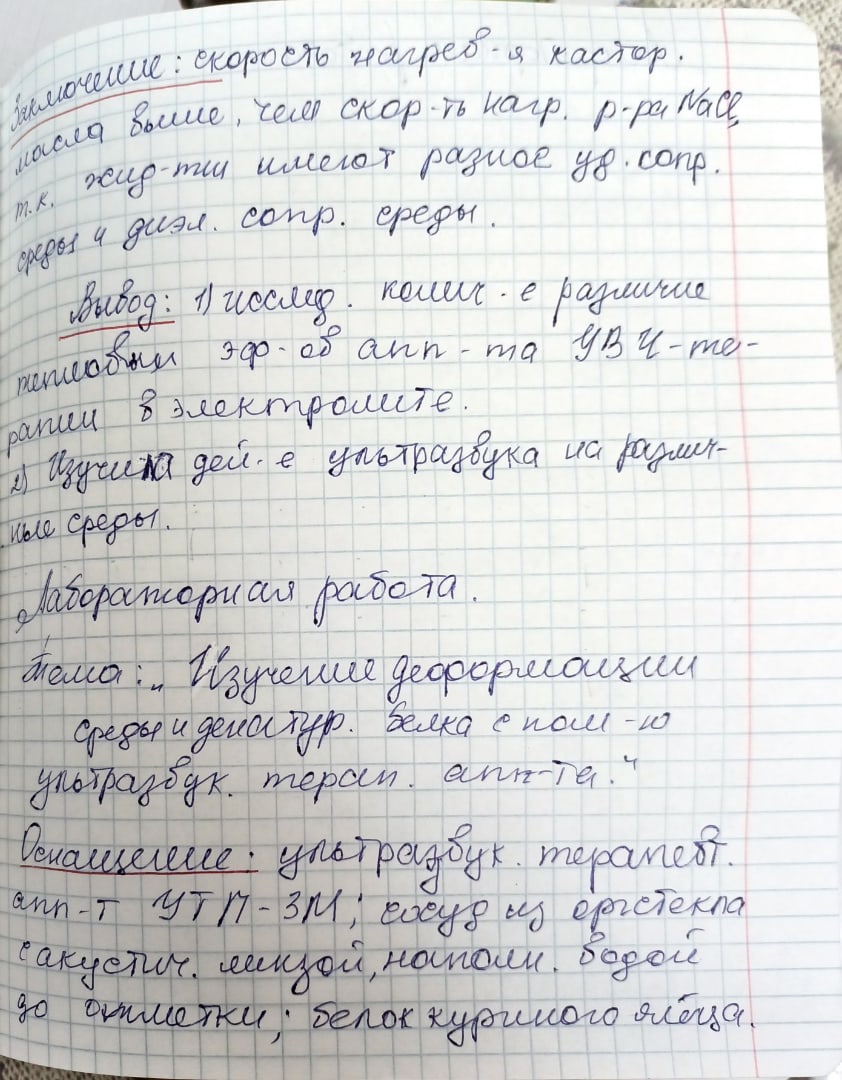 Заключение: скорость нагрев-я кастор.
масла выше, чем скор-ть нагр. р-ра NaCl,
т.к. жид-ти имеют разное уд. сопр.
среды и диэл. сопр. среды.
Вывод: 1) исслед. колич-е различие
тепловых эф-ов апп-та УВЧ-те-
рапии в электролите.
2) Изучила дей-е ультразвука на различ-
ные среды.
Лабораторная работа.
Тема: „Изучение деформации
среды и денатур. белка с пом-ю
ультразвук. терап. апп-та."
Оснащение: ультразвук. терапевт.
апп-т УТП-3М; сосуд из оргстекла
с акустич. линзой, наполн. водой
до отметки; белок куриного яйца.